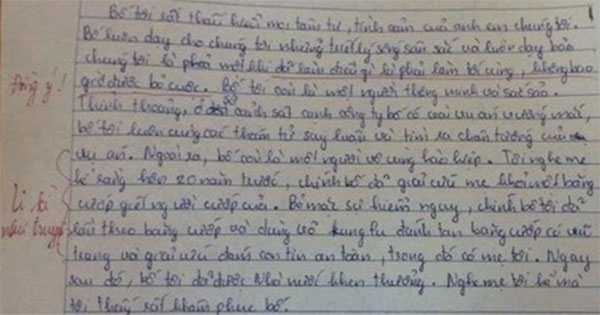 Bố tôi rất thấu hiểu mọi tâm tư, tình cảm của anh em chúng tôi.
Bố luôn dạy cho chúng tôi những triết lý sống sâu sắc và luôn dạy bảo
chúng tôi là phải mỗi khi đã làm điều gì là phải làm tới cùng, không bao
giờ được bỏ cuộc. Bố tôi còn là một người thông minh và sắt sảo.
Đồng ý!
Thỉnh thoảng, ở sở cảnh sát cạnh công ty bố có vài vụ án vướng mắc,
bố tôi luôn cùng các thám tử suy luận và tìm ra chân tướng của
vụ án. Ngoài ra, bố còn là một người vô cùng hào hiệp. Tôi nghe mẹ
kể rằng hơn 20 năm trước, chính bố đã giải cứu mẹ khỏi một băng
cướp giết người cướp của. Bỏ mặc sự hiểm nguy, chính bố tôi đã
Li kì
như truyện
lẩu theo băng cướp và dùng võ kungfu đánh tan băng cướp có vũ
trang và giải cứu đám con tin an toàn, trong đó có mẹ tôi. Ngay
sau đó, bố tôi đã được Nhà nước khen thưởng. Nghe mẹ tôi kể mà
tôi thấy rất khâm phục bố.